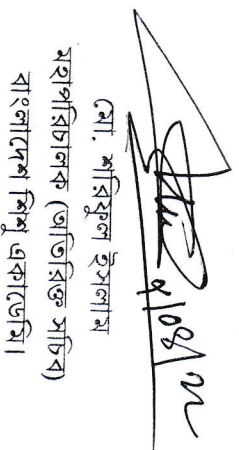 মো. শরিফুল ইসলাম
মহাপরিচালক (অতিরিক্ত সচিব)
বাংলাদেশ শিশু একাডেমি।